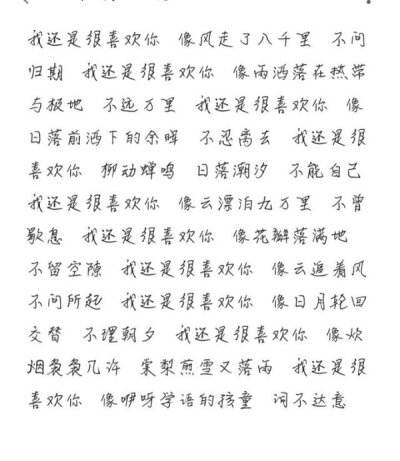 我还是很喜欢你 像风走了八千里 不问
归期 我还是很喜欢你 像雨洒落在热带
与极地 不远万里 我还是很喜欢你 像
日落前洒下的余晖 不忍离去 我还是很
喜欢你 柳动蝉鸣 日落潮汐 不能自己
我还是很喜欢你 像云漂泊九万里 不曾
歇息 我还是很喜欢你 像花瓣落满地
不留空隙 我还是很喜欢你 像云追着风
不问所起 我还是很喜欢你 像日月轮回
交替 不理朝夕 我还是很喜欢你 像炊
烟袅袅几许 棠梨煎雪又落雨 我还是很
喜欢你 像咿呀学语的孩童 词不达意